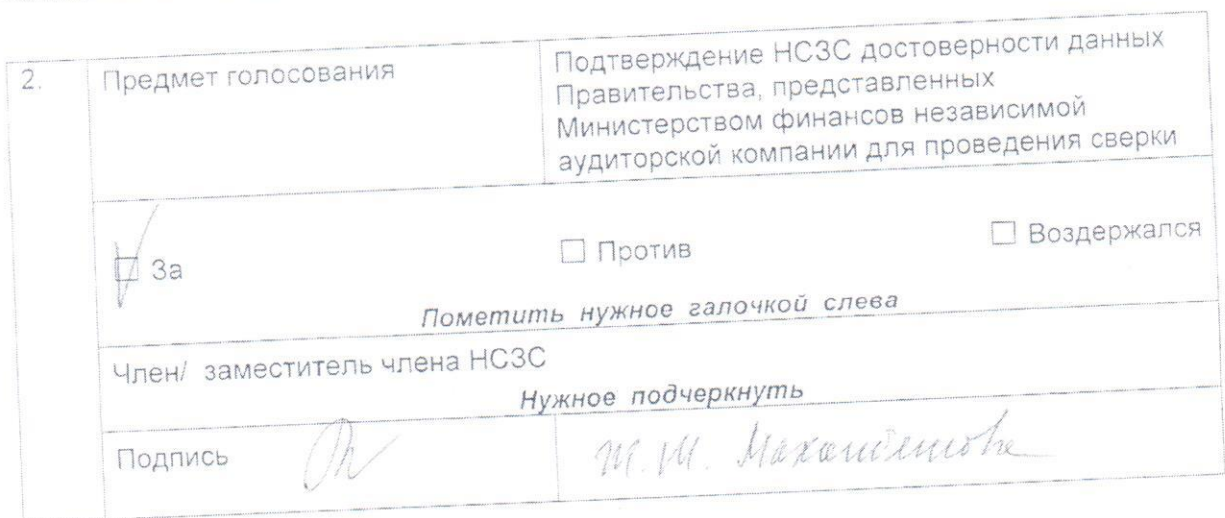 2.
Предмет голосования
Подтверждение НСЗС достоверности данных
Правительства, представленных
Министерством финансов независимой
аудиторской компании для проведения сверки
☑ За
☐ Против
☐ Воздержался
Пометить нужное галочкой слева
Член/ заместитель члена НСЗС
Нужное подчеркнуть
Подпись